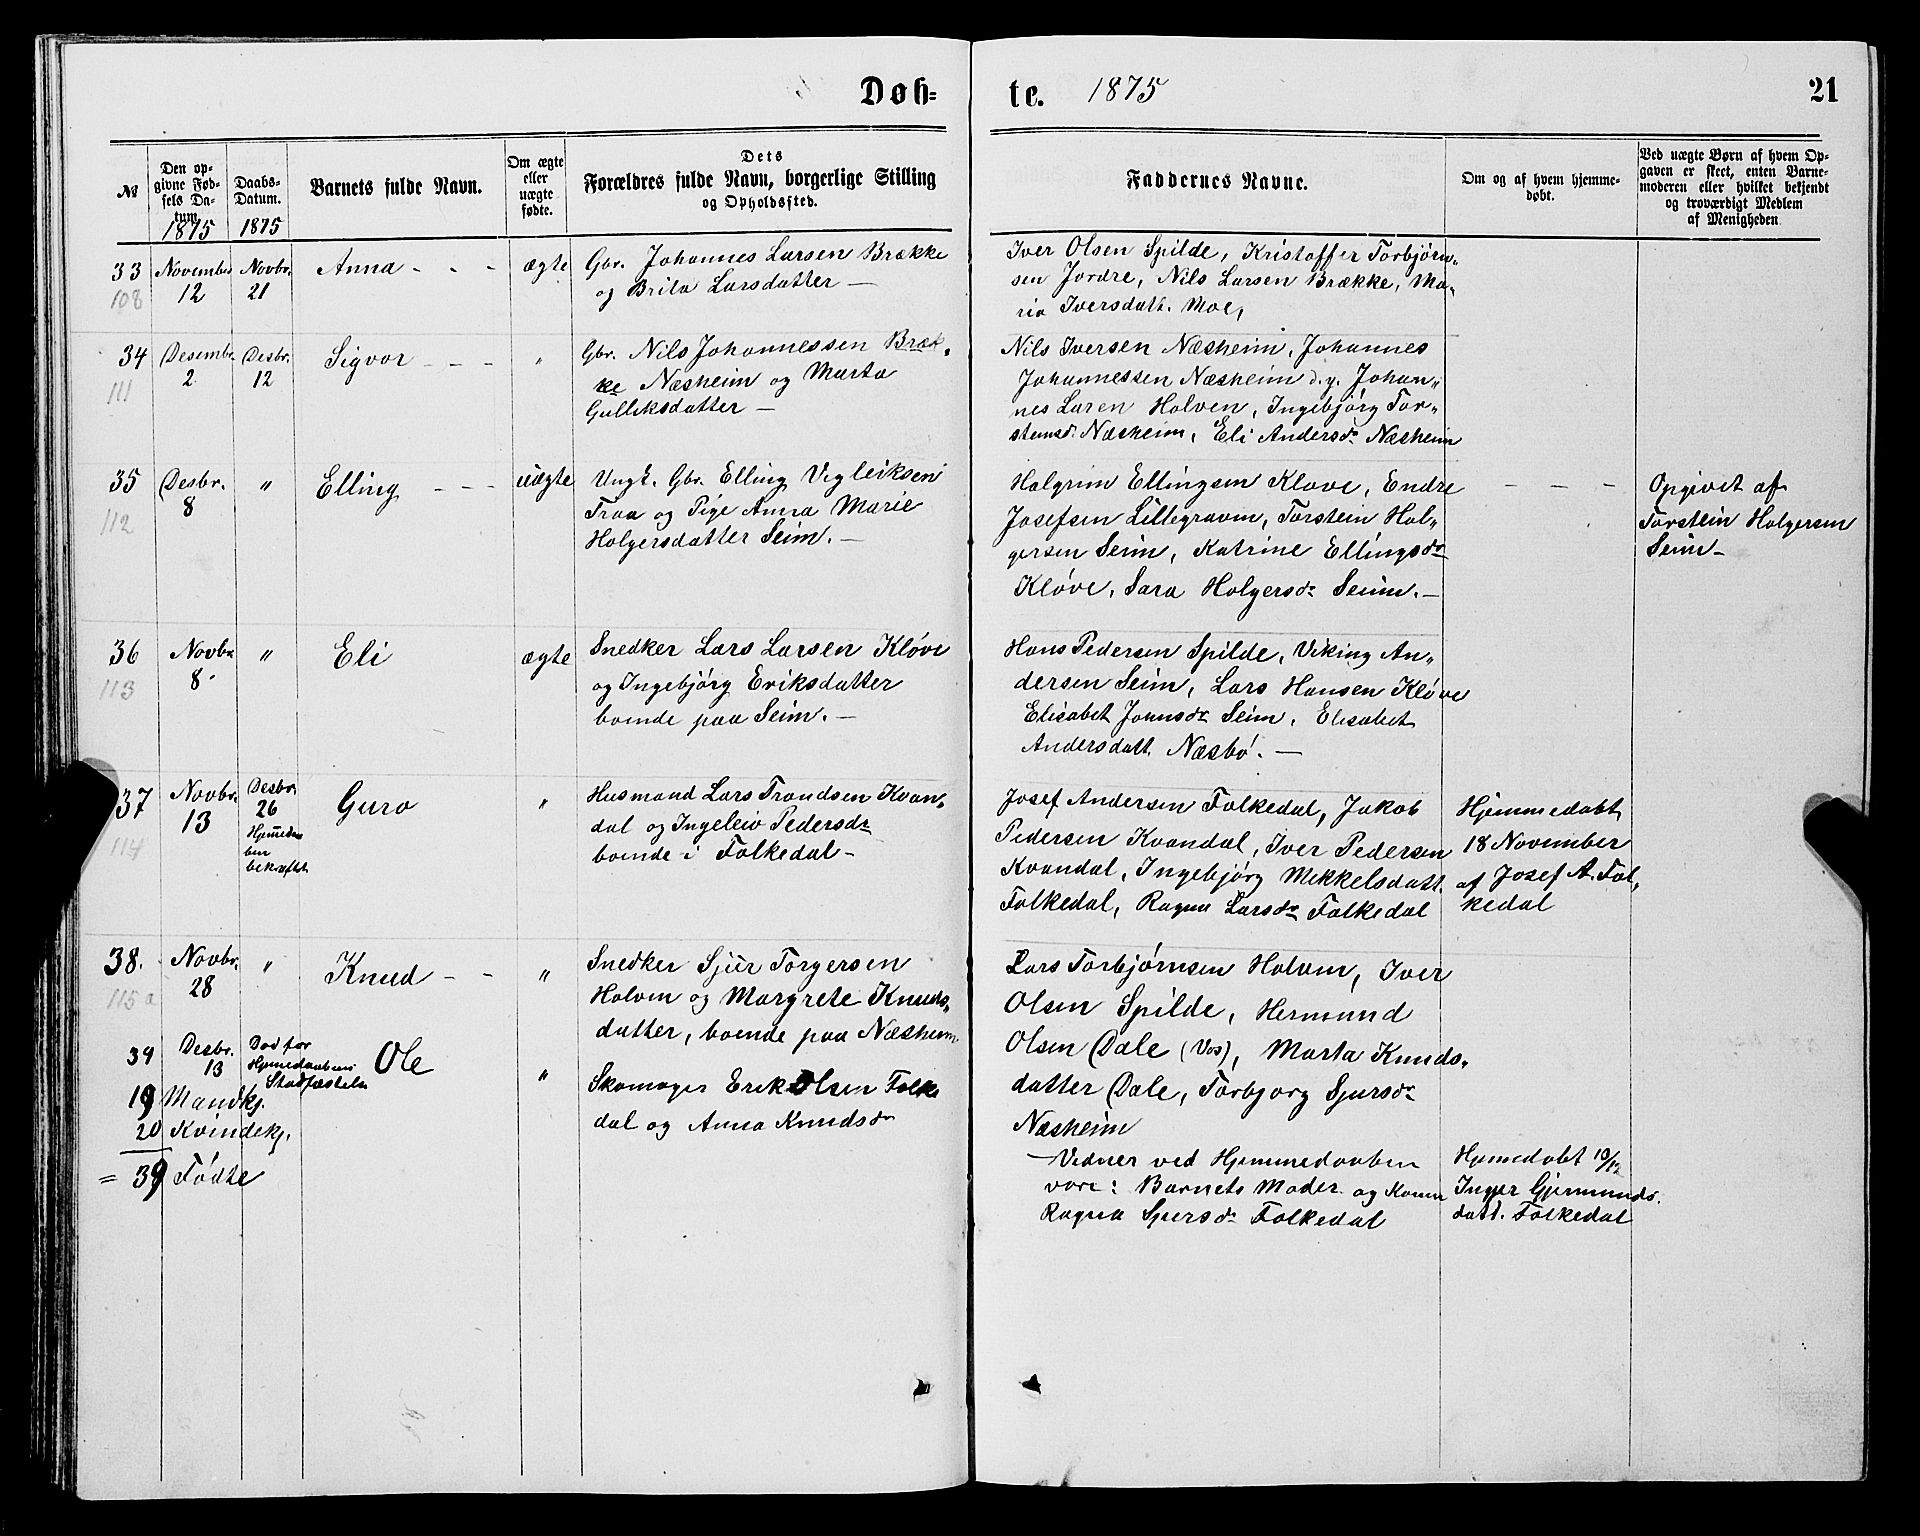 Døb=
te. 1875
21
№
Den op-
givne Fød-
sels Da-
tum.
1875
Daabs-
Datum.
1875
Barnets fulde Navn.
Om ægte
eller
uægte
fødte.
Dets
Forældres fulde Navn, borgerlige Stilling
og Opholdssted.
Faddernes Navne.
Om og af hvem hjemme-
døbt.
Ved uægte Børn af hvem Op-
gaven er skeet, enten Barne-
moderen eller hvilket bekjendt
og troværdigt Medlem
af Menigheden
33
108
November
12
Novbr.
21
Anna - - -
ægte
Gbr. Johannes Larsen Brække
og Brita Larsdatter —
Iver Olsen Spilde, Kristoffer Torbjørn„
sen Jordre, Nils Larsen Brække, Ma„
ria Iversdatt. Moe,
34
111
Desembr.
2
Desbr.
12
Sigvor - - -
"
Gbr. Nils Johannessen Bræk„
ke Næsheim og Marta
Gulleksdatter —
Nils Iversen Næsheim, Johannes
Johannessen Næsheim d.y. Johan„
nes Laren Holven, Ingebjørg Tor„
steinsdr Næsheim, Eli Andersdr Næsheim
35
112
Desbr.
8
"
Elling - - -
uægte
Ungk. Gbr. Elling Vigleiksen
Traa og Pige Anna Marie
Holgersdatter Seim. —
Holgrim Ellingsen Klove, Endre
Josefsen Lillegraven, Torstein Hol„
gersen Seim, Katrine Ellingsdr
Kløve, Sara Holgersdr Seim. —
- - -
Opgivet af
Torstein Holgersen
Seim -
36
113
Novbr
8.
"
Eli
ægte
Snedker Lars Larsen Kløve
og Ingebjørg Eriksdatter
boende paa Seim. —
Hans Pedersen Spilde, Viking An„
dersen Seim, Lars Hansen Kløve
Elisabet Johnsdr Seim, Elisabet
Andersdatt. Næsbø. —
37
114
Novbr.
13
Desbr.
26
Hjemmedaa
ben
bekræftet
Guro
"
Husmand Lars Trondsen Kvan„
dal og Ingeleiv Pedersdr
boende i Folkedal -
Josef Andersen Folkedal, Jakob
Pedersen Kvandal, Iver Pedersen
Kvandal, Ingebjørg Mikkelsdatt.
Folkedal, Ragna Larsdr Folkedal
Hjemmedøbt
18 November
af Josef A. Fol„
kedal
38.
115 a
Novbr.
28
"
Knud - -
"
Snedker Sjur Torgersen
Holven og Margrete Knuds„
datter, boende paa Næsheim
Lars Torbjørnsen Holven, Iver
Olsen Spilde, Hermund
Olsen Dale (Vos), Marta Knuds„
datter Dale, Torbjorg Sjursdr
Næsheim
39
Desbr.
13
Død før
Hjemmedaabens
Stadfæstelse
Ole
"
Skomager Erik Olsen Folke
dal og Anna Knudsdr
— Vidner ved Hjemmedaaben
vare: Barnets Moder og Kone
Ragna Sjursdr Folkedal
Hjemedøbt
Inger Gjermunds.
datt. Folkedal
19 Mandkj.
20 Kvindekj.
= 39 Fødte